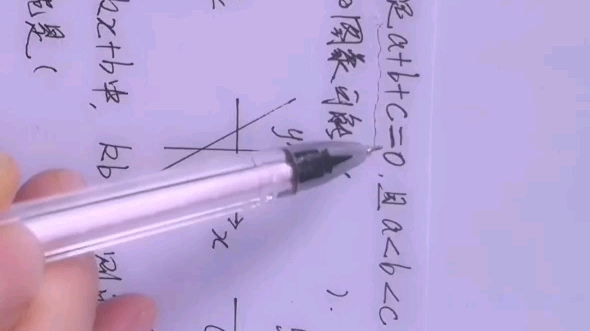 足a+b+c=0,且a<b<c
的图象可能
).
y
x
kx+b中, kb
是(